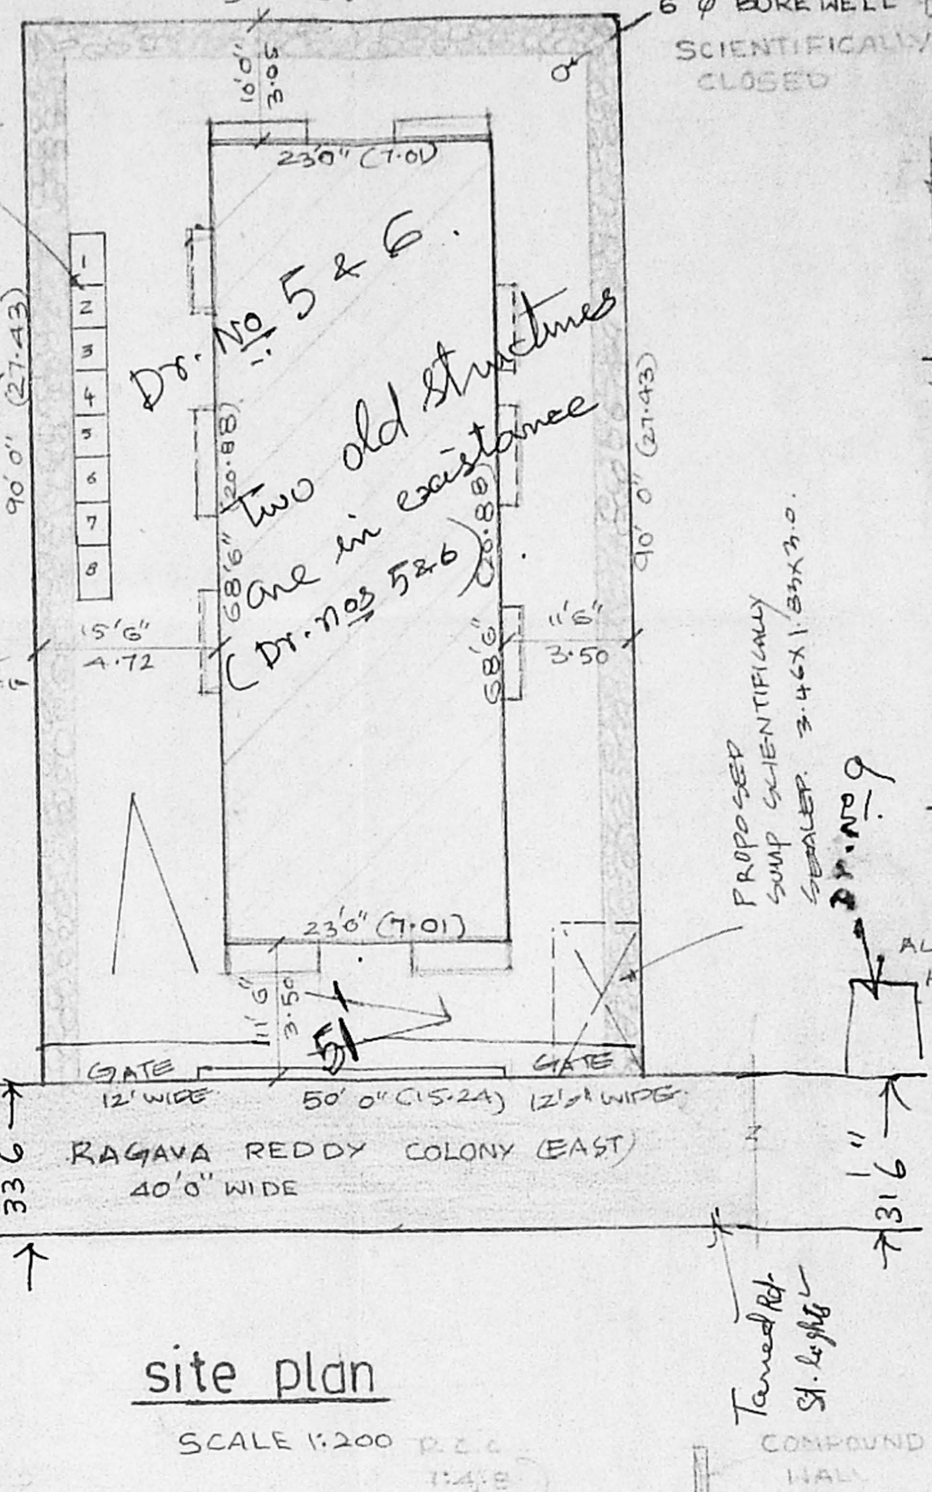 6" φ BOREWELL
SCIENTIFICALLY
CLOSED
10'0"
3.05
23'0" (7.01)
Dr. No 5 & 6.
two old structures
are in existance
(Dr. nos 5&6)
1
2
3
4
5
6
7
8
90'0" (27.43)
68'6" (20.88)
68'6" (20.88)
90'0" (27.43)
15'6"
4.72
11'6"
3.50
PROPOSED
SUMP SCIENTIFICALLY
SEALED 3.46X1.83X3.0.
Dr. No. 9
23'0" (7.01)
11'6"
3.50
51
GATE
12' WIDE
50'0" (15.24)
GATE
12'0" WIDE
RAGAVA REDDY COLONY (EAST)
40'0" WIDE
33 6
31 6"
N
Tarred Rd.
St. lights
site plan
SCALE 1:200
R.C.C
1:4:8
COMPOUND
WALL